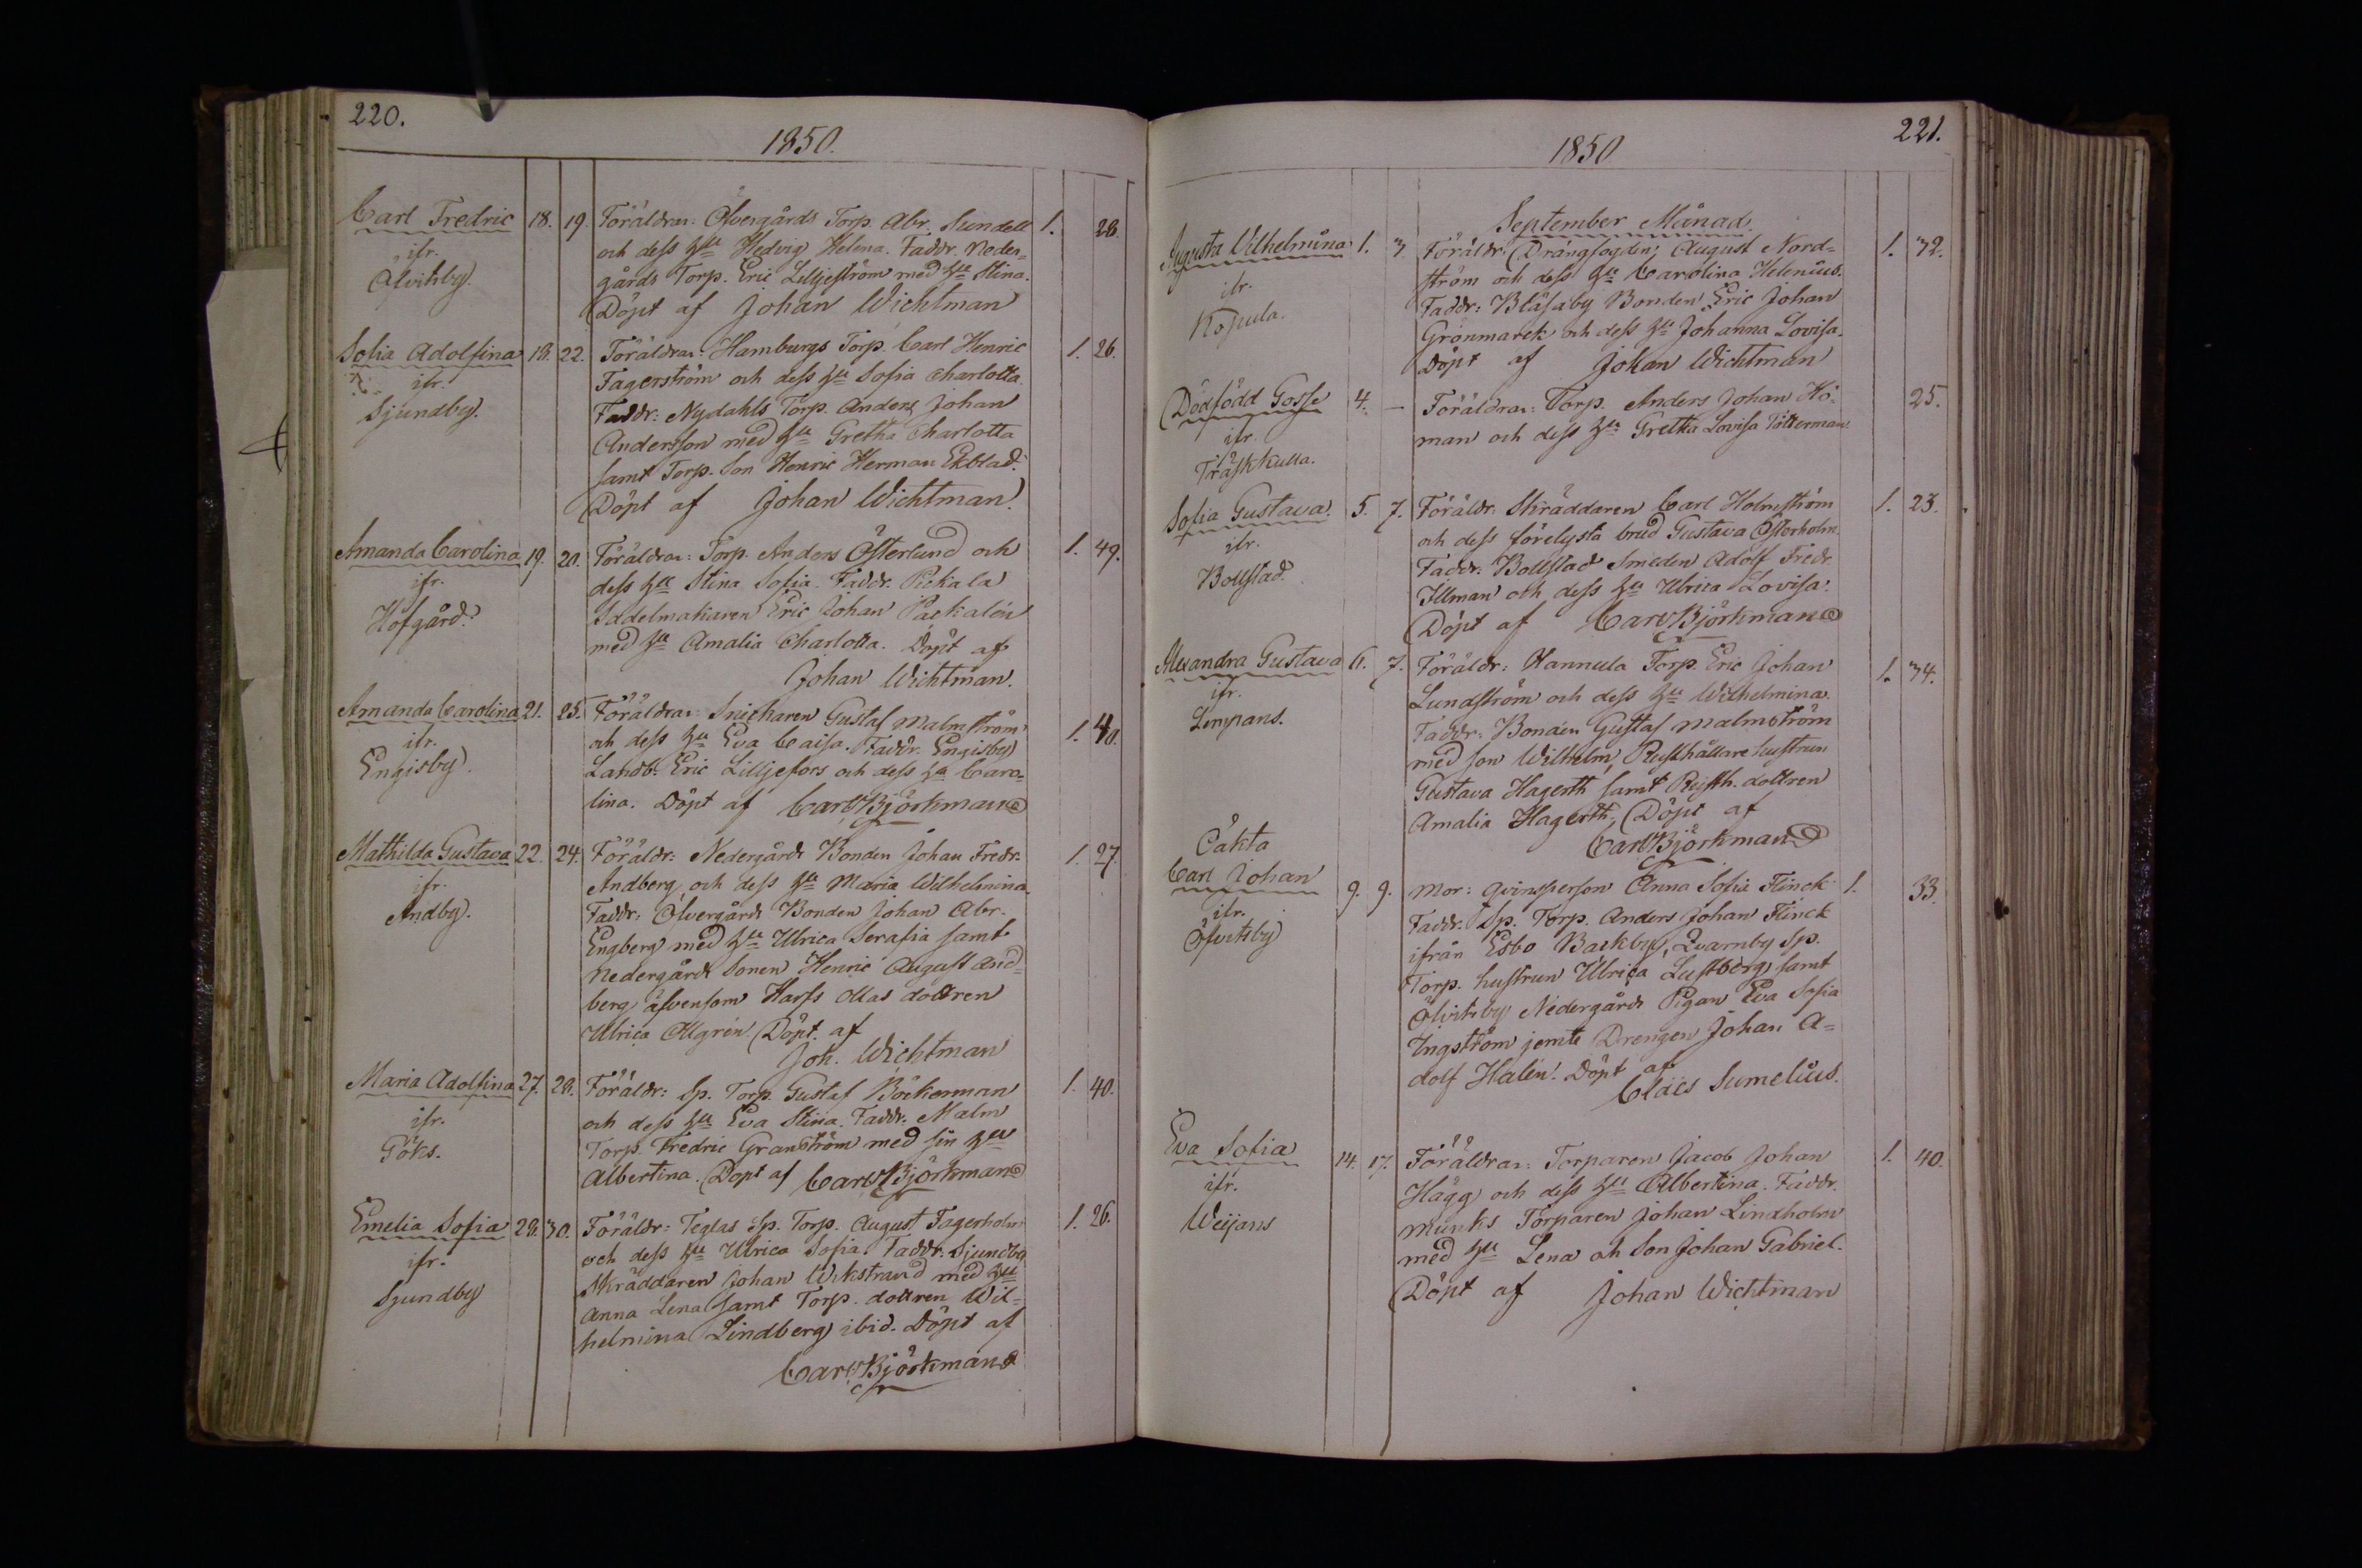 220.
1850.
Carl Fredric 18. 19. Föräldrar: Ofvergårds Torp. Abr. Sundell 1. 28.
ifr. och dess Hu Hedvig Helena. Faddr. Neder-
Olvitsby. gårds Torp. Eric Lilljeström med Hu Stina.
Döpt af Johan Wichtman
Sofia Adolfina 18. 22. Föräldrar: Hamburgs Torp. Carl Henric 1. 26.
ifr. Fagerström och dess Hu Sofia Charlotta.
Sjundby. Faddr: Nydahls Torp. Anders Johan
Andersson med Hu Gretha Charlotta
samt Torp. Son Henric Herman Ekblad.
Döpt af Johan Wichtman.
Amanda Carolina 19. 20. Föräldrar: Torp. Anders Österlund och 1. 49.
ifr. dess Hu Stina Sofia. Faddr. Pickala
Hofgård. Sadelmakaren Eric Johan Packalén
med Hu Amalia Charlotta. Döpt af
Johan Wichtman.
Amanda Carolina 21. 25. Föräldrar: Snickaren Gustaf Malmström
ifr. och dess Hu Eva Caisa. Faddr. Engisby 1. 40.
Engisby. Landb. Eric Lilljefors och dess Hu Caro-
lina. Döpt af Carl Björkman
Mathilda Gustava 22. 24. Föräldr: Nedergårds Bonden Johan Fredr. 1. 27
ifr. Andberg och dess Hu Maria Wilhelmina.
Andby. Faddr: Ofvergårds Bonden Johan Abr.
Engberg med Hu Ulrica Serafia samt
Nedergårds Sonen Henric August And-
berg äfvensom Harfs Ollas dottren
Ulrica Ollgrén. Döpt af
Joh. Wichtman
Maria Adolfina 27. 28. Föräldr: Sp. Torp. Gustaf Böckerman 1. 40.
ifr. och dess Hu Eva Stina. Faddr. Malm
Göks. Torp. Fredric Granström med sin Hu
Albertina. Döpt af Carl Björkman
Emelia Sofia 28. 30. Föräldr: Teglas Sp. Torp. August Fagerholm 1. 26.
ifr. och dess Hu Ulrica Sofia. Faddr. Sjundby
Sjundby Skräddaren Johan Wikstrand med Hu
Anna Lena samt Torp. dottren Wil-
helmina Lindberg ibid. Döpt af
Carl Björkman
221.
1850
September Månad.
Augusta Vilhelmina 1. 3. Föräldr. Drängfogden August Nord- 1. 32.
ifr. ström och dess Hu Carolina Helenius.
Kopula. Faddr: Bläsaby Bonden Eric Johan
Grönmarck och dess Hu Johanna Lovisa.
Döpt af Johan Wichtman
Dödfödd Gosse 4. – Föräldrar: Torp. Anders Johan Hö- 25.
ifr. man och dess Hu Gretha Lovisa Tötterman
Träskkulla.
Sofia Gustava. 5. 7. Föräldr. Skräddaren Carl Holmström 1. 23.
ifr. och dess förelysta brud Gustava Österholm.
Bollstad. Faddr. Bollstad Smeden Adolf Fredr.
Illman och dess Hu Ulrica Lovisa.
Döpt af Carl Björkman
Alexandra Gustava 6. 7. Föräldr: Hannula Torp. Eric Johan 1. 34.
ifr. Lundström och dess Hu Wilhelmina.
Limpans. Faddr. Bonden Gustaf Malmström
med son Wilhelm, Rusthållare hustrun
Gustava Hagerth samt Rusth. dottren
Amalia Hagerth, Döpt af
Carl Björkman
Oäkta
Carl Johan 9. 9. Mor: qvinsperson Anna Sofia Flinck 1. 33.
ifr. Faddr. Sp. Torp. Anders Johan Flinck
Ofvitsby ifrån Esbo Backby, Qvarnby Sp.
Torp. hustrun Ulrica Lustberg samt
Olvitsby Nedergårds Pigan Eva Sofia
Ingström jemte Drengen Johan A-
dolf Halén. Döpt af
Claës Sumelius.
Eva Sofia 14. 17. Föräldrar: Torparen Jacob Johan 1. 40.
ifr. Hägg och dess Hu Albertina. Faddr.
Weijans Munks Torparen Johan Lindholm
med Hu Lena och Son Johan Gabriel.
Döpt af Johan Wichtman